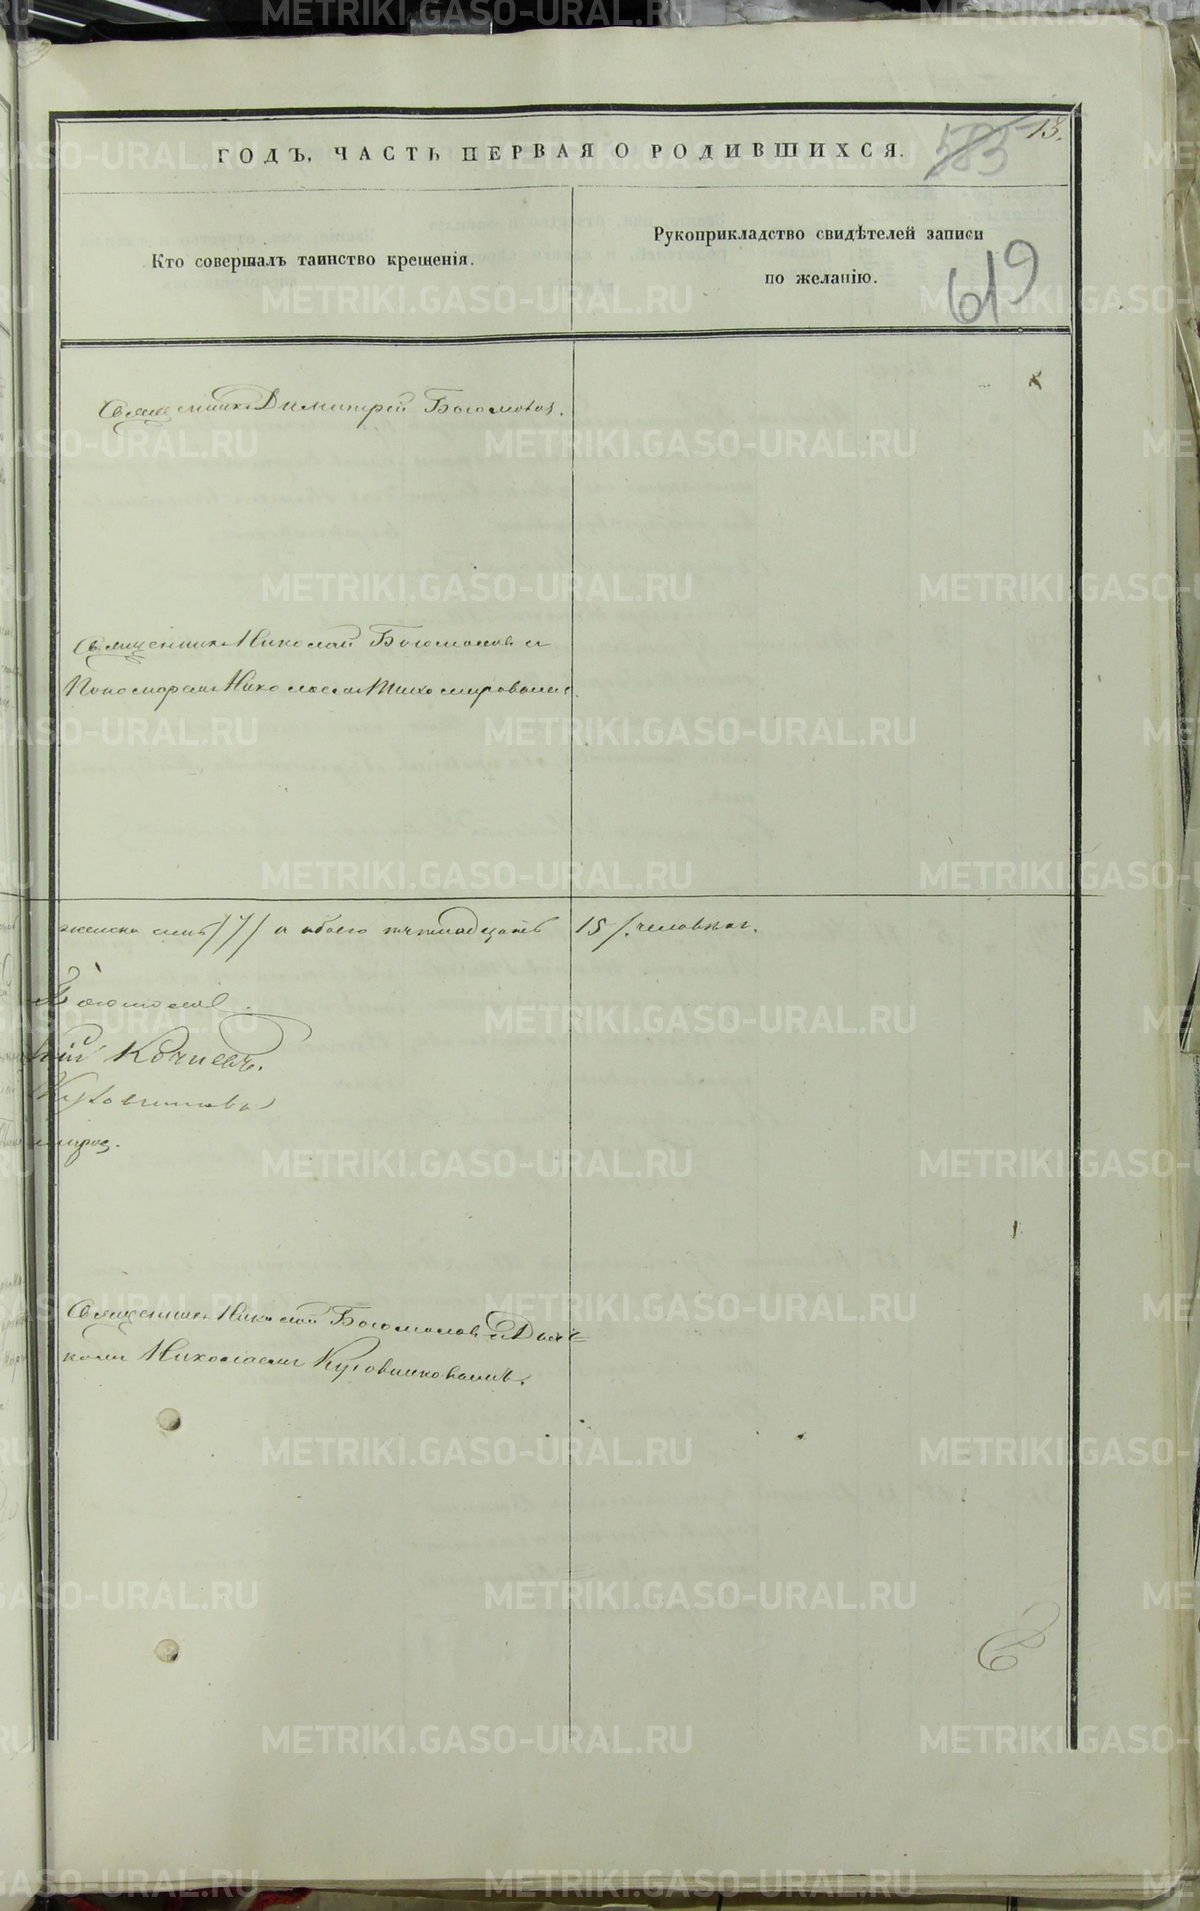 13.
585
ГОДЪ, ЧАСТЬ ПЕРВАЯ О РОДИВШИХСЯ.
Кто совершалъ таинство крещенія.
Рукоприкладство свидѣтелей записи
по желанію.
619
Священникъ Димитрій Богомолов.
Священникъ Николай Богомоловъ и
Пономаремъ Николаемъ Тихомировымъ
женска семь /7/ а обоего пятнадцать 15/. человѣкъ.
Богомолов.
кій Кочневъ.
Куковинков
миров.
Священникъ Николай Богомоловъ и Дьяч=
комъ Николаемъ
METRIKI.GASO-URAL.RU